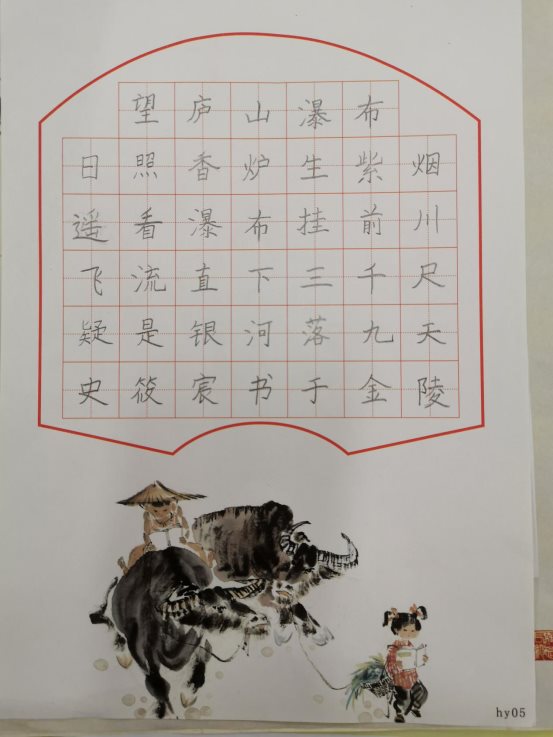 望庐山瀑布
日照香炉生紫烟
遥看瀑布挂前川
飞流直下三千尺
疑是银河落九天
史筱宸书于金陵
hy05